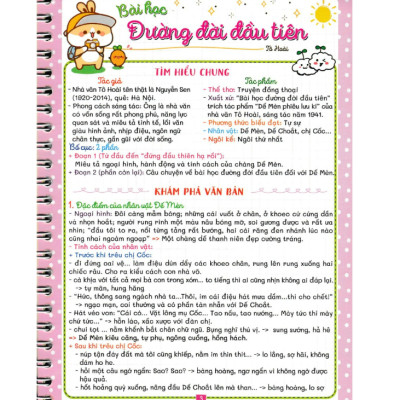 Bài học
Đường đời đầu tiên
Tô Hoài
TÌM HIỂU CHUNG
Tác giả
- Nhà văn Tô Hoài tên thật là Nguyễn Sen
(1920-2014), quê: Hà Nội.
- Phong cách sáng tác: Ông là nhà văn
có vốn sống rất phong phú, năng lực
quan sát và miêu tả tinh tế, lối văn
giàu hình ảnh, nhịp điệu, ngôn ngữ
chân thực, gần gũi với đời sống.
Tác phẩm
- Thể thơ: Truyện đồng thoại
- Xuất xứ: "Bài học đường đời đầu tiên"
trích tác phẩm "Dế Mèn phiêu lưu kí" của
nhà văn Tô Hoài, sáng tác năm 1941.
- Phương thức biểu đạt: Tự sự
- Nhân vật: Dế Mèn, Dế Choắt, chị Cốc...
- Ngôi kể: Ngôi thứ nhất
Bố cục: 2 phần
- Đoạn 1 (Từ đầu đến "đứng đầu thiên hạ rồi"):
Miêu tả ngoại hình, hành động và tính cách của chàng Dế Mèn.
- Đoạn 2 (phần còn lại): Câu chuyện về bài học đường đời đầu tiên đối với Dế Mèn.
KHÁM PHÁ VĂN BẢN
1. Đặc điểm của nhân vật Dế Mèn
- Ngoại hình: Đôi càng mẫm bóng; những cái vuốt ở chân, ở khoeo cứ cứng dần
và nhọn hoắt; người rung rinh một màu nâu bóng mỡ, soi gương được và rất ưa
nhìn; "đầu tôi to ra, nổi từng tảng rất bướng, hai cái răng đen nhánh lúc nào
cũng nhai ngoàm ngoạp" => Một chàng dế thanh niên đẹp cường tráng.
- Tính cách của nhân vật:
+ Trước khi trêu chị Cốc:
- đi đứng oai vệ... làm điệu dún dẩy các khoeo chân, rung lên rung xuống hai
chiếc râu. Cho ra kiểu cách con nhà võ.
- cà khịa với tất cả mọi bà con trong xóm... to tiếng thì ai cũng nhịn không ai đáp lại.
-> tự mãn, hung hăng
- "Hức, thông sang ngách nhà ta...Thôi, im cái điệu hát mưa dầm...thì cho chết!"
-> ngạo mạn, coi thường và có phần tàn nhẫn với Dế Choắt.
- Hát véo von: "Cái cò... Vặt lông mụ Cốc... Tao nấu, tao nướng... Mày tức thì mày
chứ tức..." -> hỗn láo, xấc xược với đàn chị.
- chui tọt ... nằm khểnh bắt chân chữ ngũ. Bụng nghĩ thú vị. -> sung sướng, hả hê
=> Dế Mèn kiêu căng, tự phụ, ngông cuồng, hống hách.
+ Sau khi trêu chị Cốc:
- núp tận đáy đất mà tôi cũng khiếp, nằm im thin thít... -> lo lắng, sợ hãi, không
dám ho he.
- hỏi một câu ngớ ngẩn: Sao? Sao? -> bàng hoàng, ngơ ngẩn vì không ngờ được
hậu quả.
- hốt hoảng quỳ xuống, nâng đầu Dế Choắt lên mà than... -> bàng hoàng, lo sợ
1